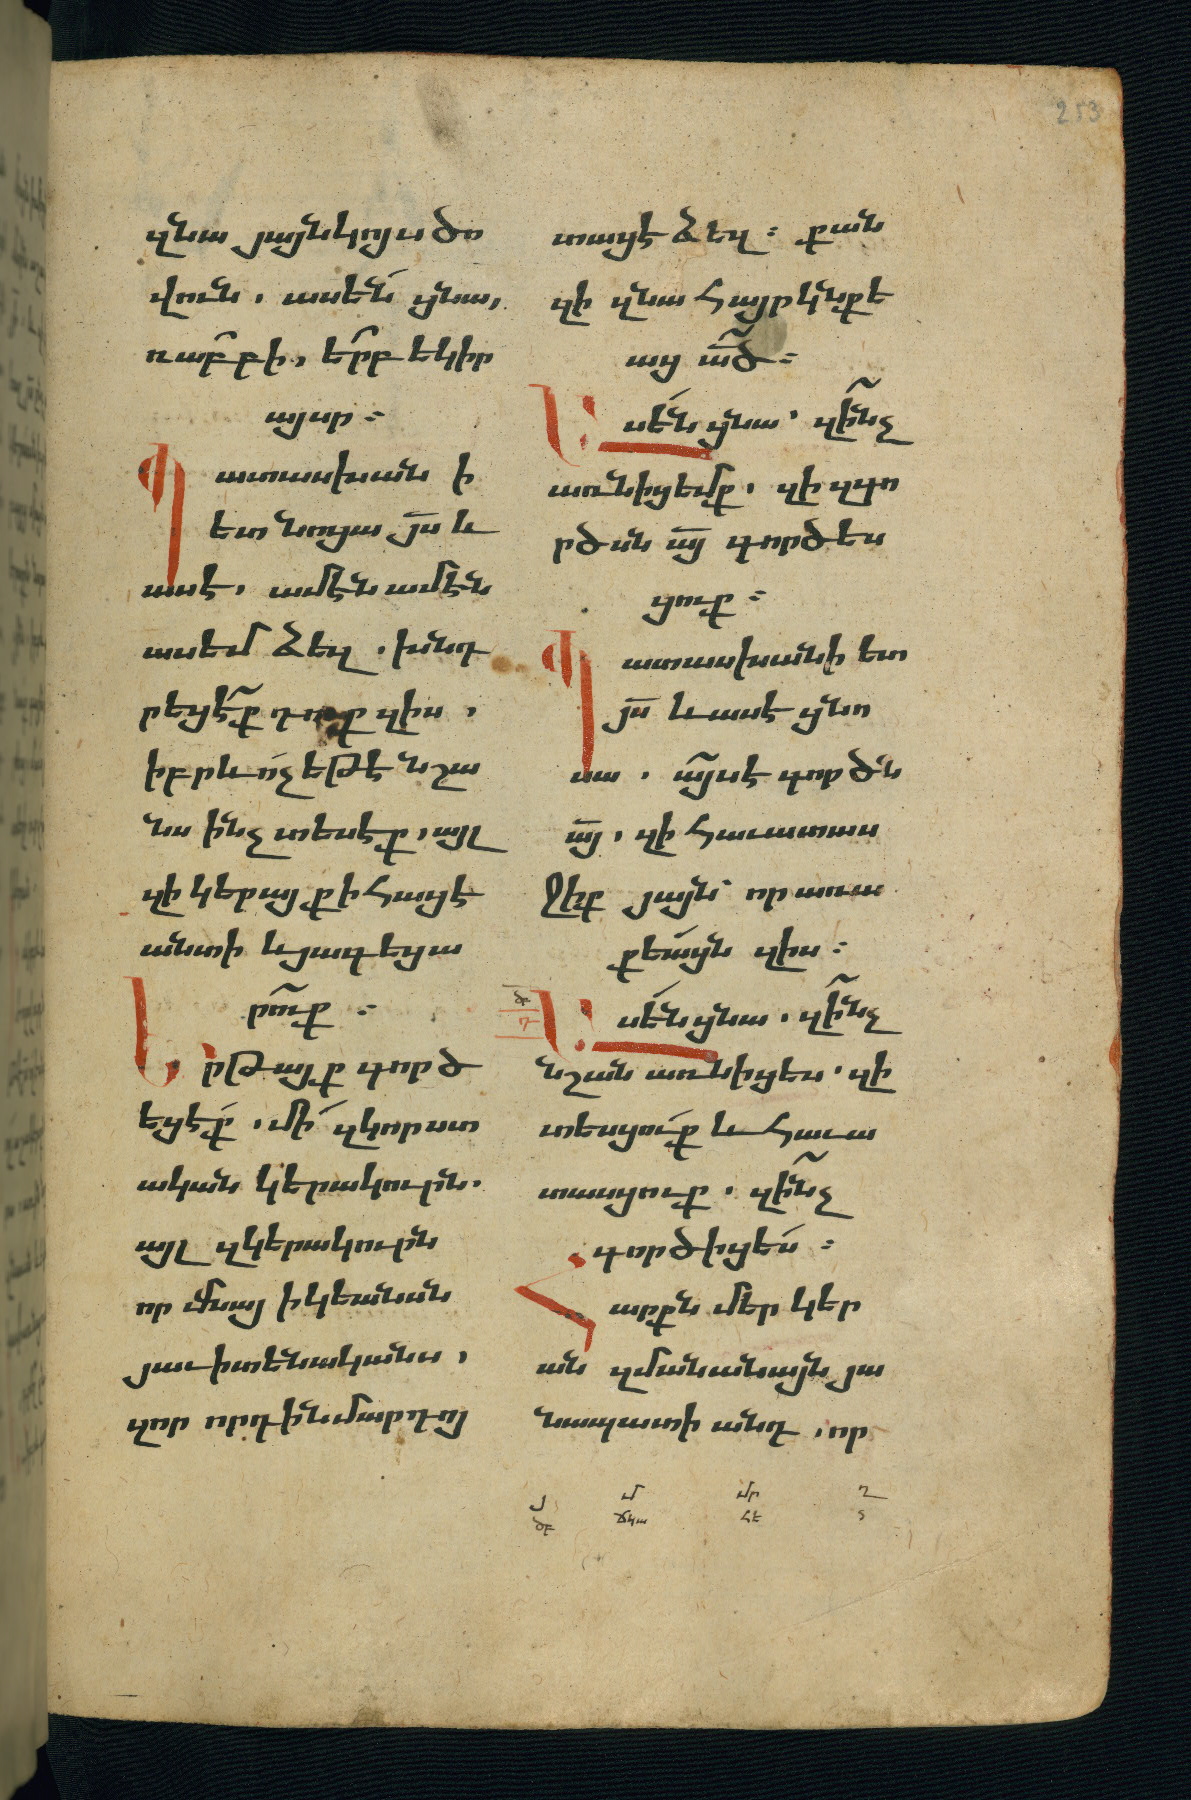 253
զնա յայնկոյս ծո
վուն. ասեն ցնա,
ռաբբի, երբ եկիր
այսր։
Պատասխանի
ետ նոցա յս և
ասէ. ամէն ամէն
ասեմ ձեզ. խնդ
րեցէք դուք զիս,
իբրև ոչ եթէ նշա
նս ինչ տեսէք, այլ
զի կերայք ի հացէ
անտի և յագեցա
րուք։
Երթայք գործ
եցէք. մի զկորստ
ական կերակուրն.
այլ զկերակուրն
որ մնայ ի կեանսն
յաւիտենականս,
զոր որդին մարդոյ
տացէ ձեզ։ քան
զի զնա հայր կնքե
աց ած։
Ասեն ցնա. զինչ
առնիցեմք. զի զգո
րծսն այ գործես
ցուք։
Պատասխանի ետ
յս և ասէ ցնո
սա. այս է գործն
այ, զի հաւատաս
ջիք յայն որ առա
քեացն զիս։
ծբ
դ
Ասեն ցնա. զինչ
նշան առնիցես. զի
տեսցուք և հաւա
տասցուք. զինչ
գործիցես։
Հարքն մեր կեր
ան զմանանայն յա
նապատի անդ, որ
յ մ մր ղ
ծբ ճկա հէ